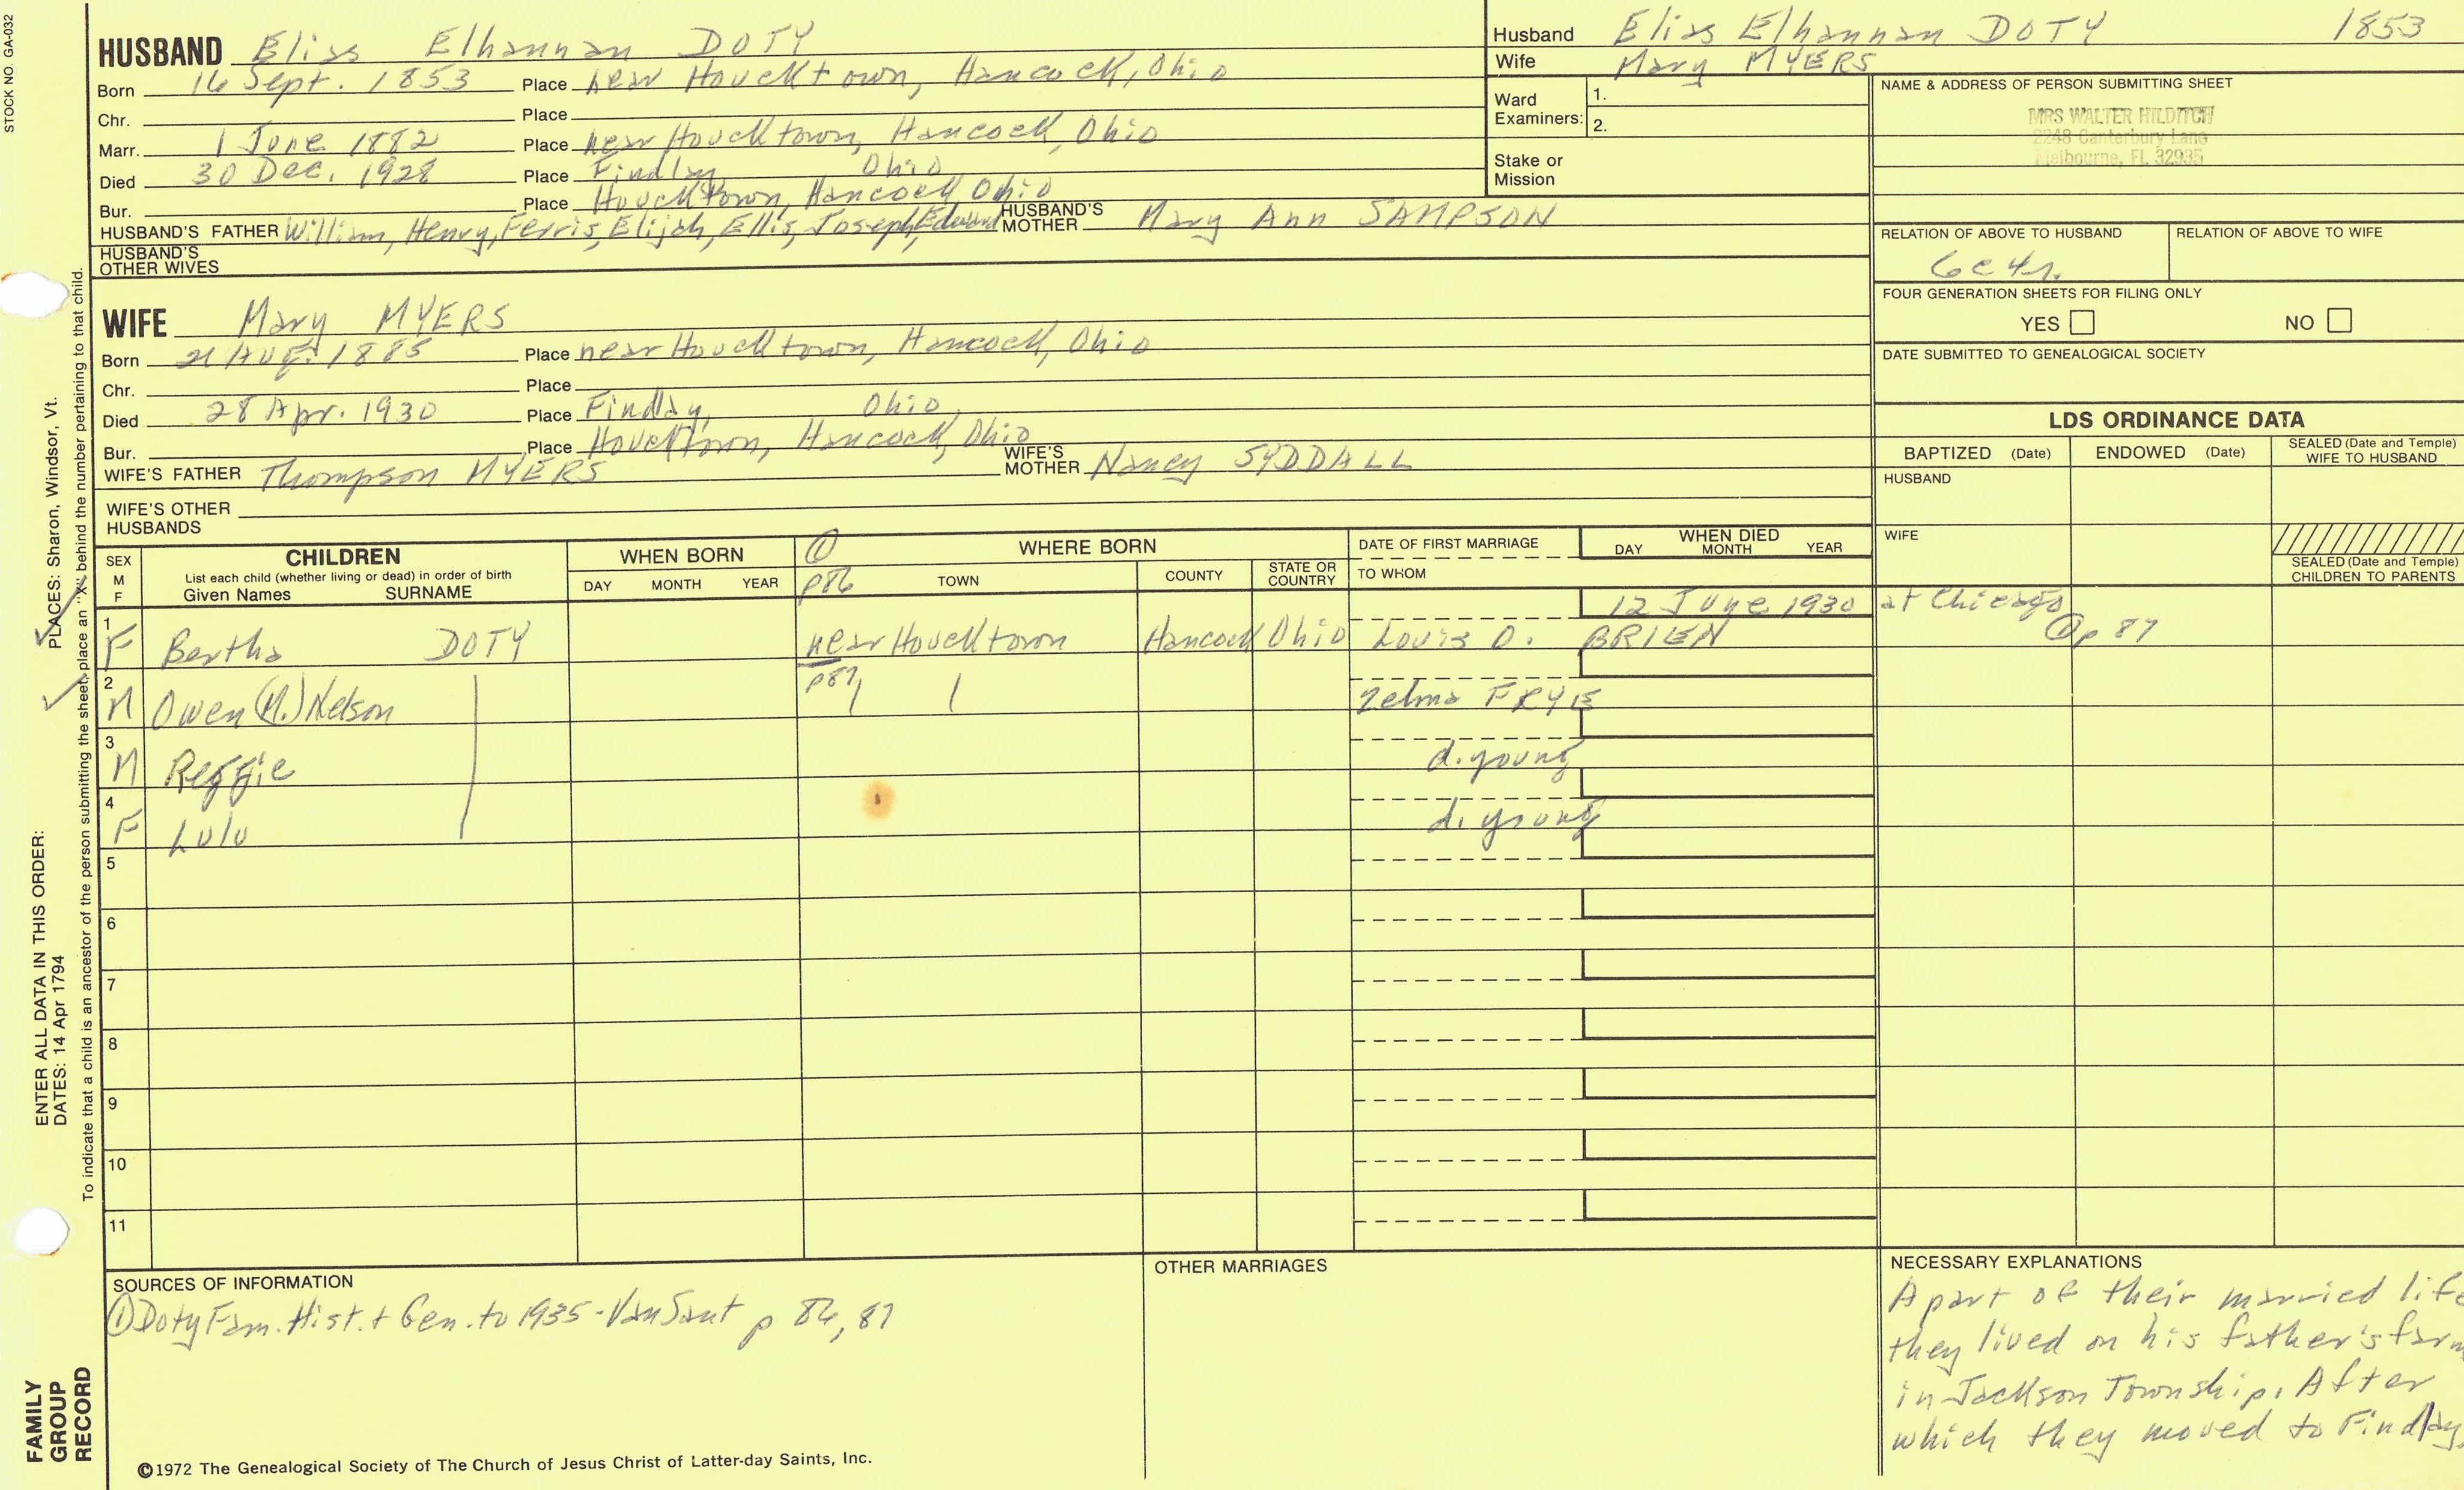 STOCK NO. GA-032
HUSBAND Elias Elhannan DOTY
Born 16 Sept. 1853 Place near Houcktown, Hancock, Ohio
Chr. Place
Marr. 1 June 1882 Place near Houcktown, Hancock, Ohio
Died 30 Dec. 1928 Place Findlay, Ohio
Bur. Place Houcktown, Hancock Ohio
HUSBAND'S FATHER William, Henry, Ferris, Elijah, Ellis, Joseph, Edward HUSBAND'S MOTHER Mary Ann SAMPSON
HUSBAND'S OTHER WIVES
WIFE Mary MYERS
Born 21 Aug. 1885 Place near Houcktown, Hancock, Ohio
Chr. Place
Died 28 Apr. 1930 Place Findlay, Ohio,
Bur. Place Houcktown, Hancock, Ohio
WIFE'S FATHER Thompson MYERS WIFE'S MOTHER Nancy SYDDALL
WIFE'S OTHER HUSBANDS
Husband Elias Elhannan DOTY 1853
Wife Mary MYERS
Ward Examiners: 1.
2.
Stake or Mission
NAME & ADDRESS OF PERSON SUBMITTING SHEET
MRS WALTER HILDITCH
2248 Canterbury Lane
Melbourne, FL 32935
RELATION OF ABOVE TO HUSBAND RELATION OF ABOVE TO WIFE
6c4r.
FOUR GENERATION SHEETS FOR FILING ONLY
YES NO
DATE SUBMITTED TO GENEALOGICAL SOCIETY
LDS ORDINANCE DATA
BAPTIZED (Date) ENDOWED (Date) SEALED (Date and Temple) WIFE TO HUSBAND
HUSBAND
WIFE
SEALED (Date and Temple) CHILDREN TO PARENTS
SEX M F CHILDREN WHEN BORN ① WHERE BORN DATE OF FIRST MARRIAGE WHEN DIED
List each child (whether living or dead) in order of birth
Given Names SURNAME DAY MONTH YEAR p86 TOWN COUNTY STATE OR COUNTRY TO WHOM DAY MONTH YEAR
12 June 1930 at Chicago
1 F Bertha DOTY near Houcktown Hancock Ohio Louis O. BRIEN ① p 87
2 M Owen (M.) Nelson p87 Zelma FRYE
3 M Reggie d. young
4 F Lulu d. young
5
6
7
8
9
10
11
SOURCES OF INFORMATION
① Doty Fam. Hist. + Gen. to 1935 - Van Sant p 86, 87
OTHER MARRIAGES
NECESSARY EXPLANATIONS
A part of their married life
they lived on his father's farm
in Jackson Township. After
which they moved to Findlay,
©1972 The Genealogical Society of The Church of Jesus Christ of Latter-day Saints, Inc.
FAMILY GROUP RECORD
ENTER ALL DATA IN THIS ORDER:
DATES: 14 Apr 1794
PLACES: Sharon, Windsor, Vt.
To indicate that a child is an ancestor of the person submitting the sheet, place an "X" behind the number pertaining to that child.